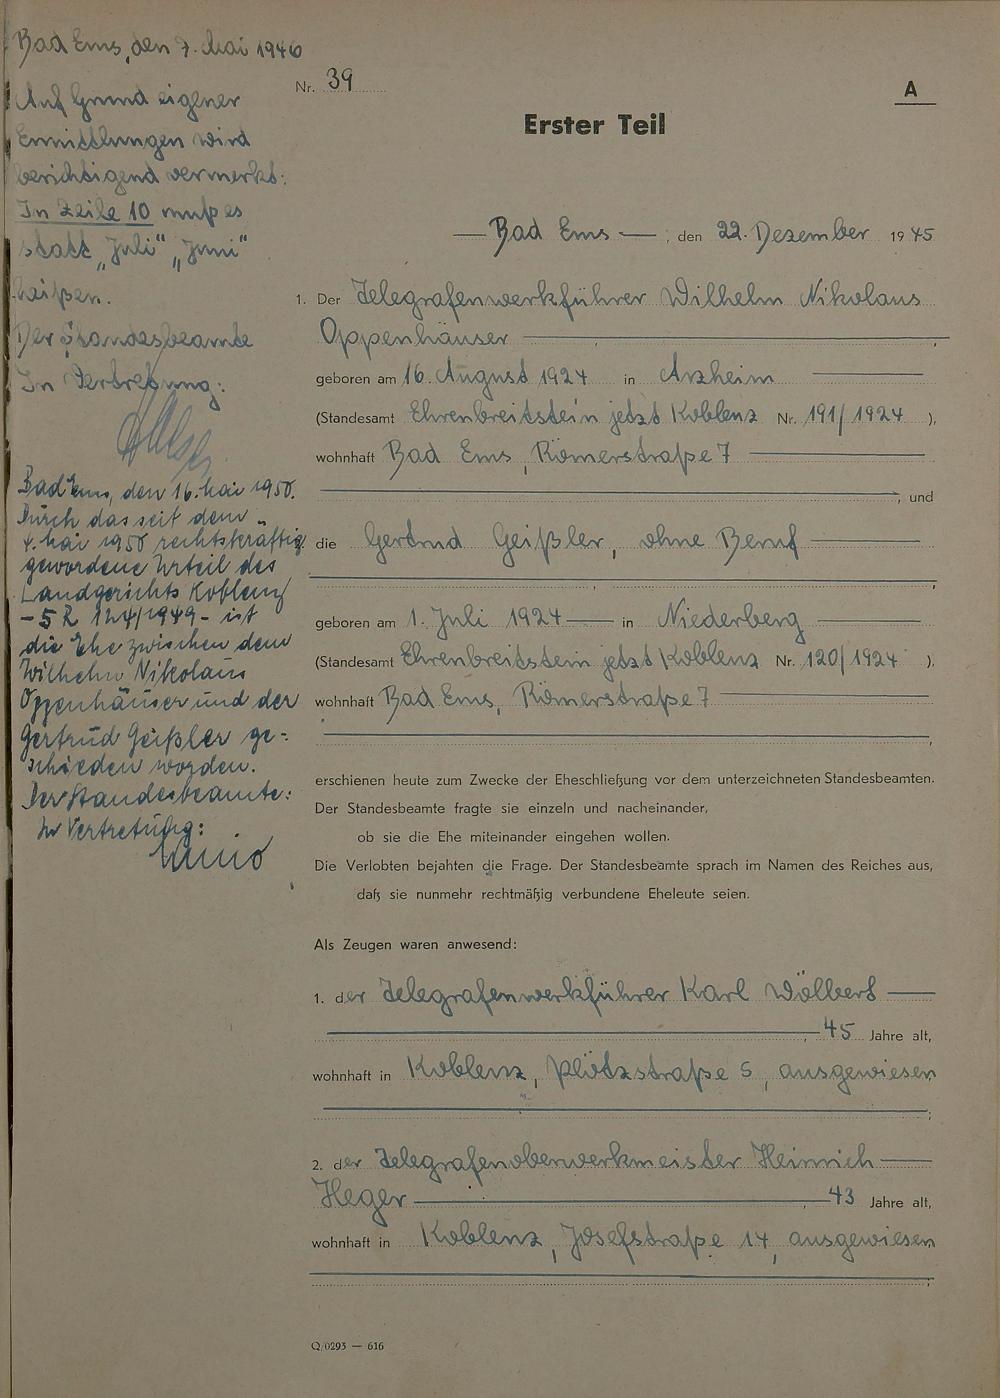 Bad Ems, den 7. Mai 1946
Auf Grund eigener
Ermittlungen wird
berichtigend vermerkt:
In Zeile 10 muß es
statt „Juli“ „Juni“
heißen.
Der Standesbeamte
In Vertretung:
Bad Ems, den 16. Mai 1950.
Durch das seit dem
4. Mai 1950 rechtskräftig
gewordene Urteil des
Landgerichts Koblenz
- 5 R 124/1949 - ist
die Ehe zwischen dem
Wilhelm Nikolaus
Oppenhäuser und der
Gertrud Geißler ge-
schieden worden.
Der Standesbeamte:
In Vertretung:
Nr. 39
A
Erster Teil
Bad Ems , den 22. Dezember 1945
1. Der Telegrafenwerkführer Wilhelm Nikolaus
Oppenhäuser
geboren am 16. August 1924 in Arzheim
(Standesamt Ehrenbreitstein jetzt Koblenz Nr. 191/1924 ),
wohnhaft Bad Ems, Römerstraße 7
, und
die Gertrud Geißler, ohne Beruf
geboren am 1. Juli 1924 in Niederberg
(Standesamt Ehrenbreitstein jetzt Koblenz Nr. 120/1924 ),
wohnhaft Bad Ems, Römerstraße 7
erschienen heute zum Zwecke der Eheschließung vor dem unterzeichneten Standesbeamten.
Der Standesbeamte fragte sie einzeln und nacheinander,
ob sie die Ehe miteinander eingehen wollen.
Die Verlobten bejahten die Frage. Der Standesbeamte sprach im Namen des Reiches aus,
daß sie nunmehr rechtmäßig verbundene Eheleute seien.
Als Zeugen waren anwesend:
1. der Telegrafenwerkführer Karl Wölbert
, 45 Jahre alt,
wohnhaft in Koblenz, Plötzstraße 5, ausgewiesen
;
2. der Telegrafenoberwerkmeister Heinrich
Heger , 43 Jahre alt,
wohnhaft in Koblenz, Josefstraße 14, ausgewiesen
;
Q/0293 — 616